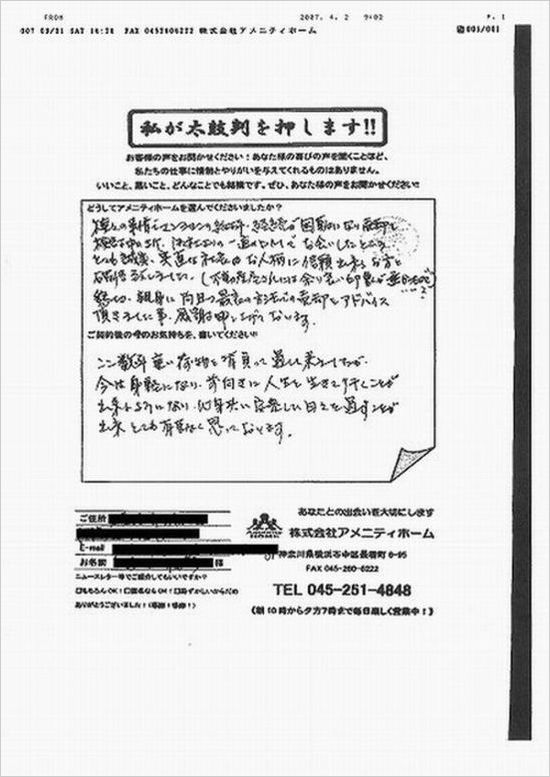 FROM 2007. 4. 2 9:02 P. 1
007 03/31 SAT 16:28 FAX 0452606222 株式会社アメニティホーム 001/001
私が太鼓判を押します!!
お客様の声をお聞かせください!あなた様の喜びの声を聞くことほど、
私たちの仕事に情熱とやりがいを与えてくれるものはありません。
いいこと、悪いこと、どんなことでも結構です。ぜひ、あなた様の声をお聞かせください!!
どうしてアメニティホームを選んでくださいましたか?
種々の事情でマンションの
困難になり売却を
一通のDMでお会いしたところ
とても誠実、実直な社長のお人柄に信頼出来るお方と
確信致しました。
親身に
最良の方法での売却をアドバイス
頂きました事、感謝申し上げています。
ご契約後の今のお気持ちを、書いてください!!
ここ数年重い荷物を背負って過して来ましたが、
今は身軽になり、前向きに人生を生きて行くことが
出来るようになり、心身共に安定した日々を過すことが
出来とても有難く思っております。
ご住所
E-mail
お名前 様
ニュースレター等でご紹介してもいいですか?
□もちろんOK!□匿名ならOK!□恥ずかしいからだめ
ありがとうございました!(感謝!感謝!)
あなたとの出会いを大切にします
株式会社アメニティホーム
神奈川県横浜市中区長者町 6-95
FAX 045-260-6222
TEL 045-251-4848
(朝10時から夕方7時まで毎日楽しく営業中!)